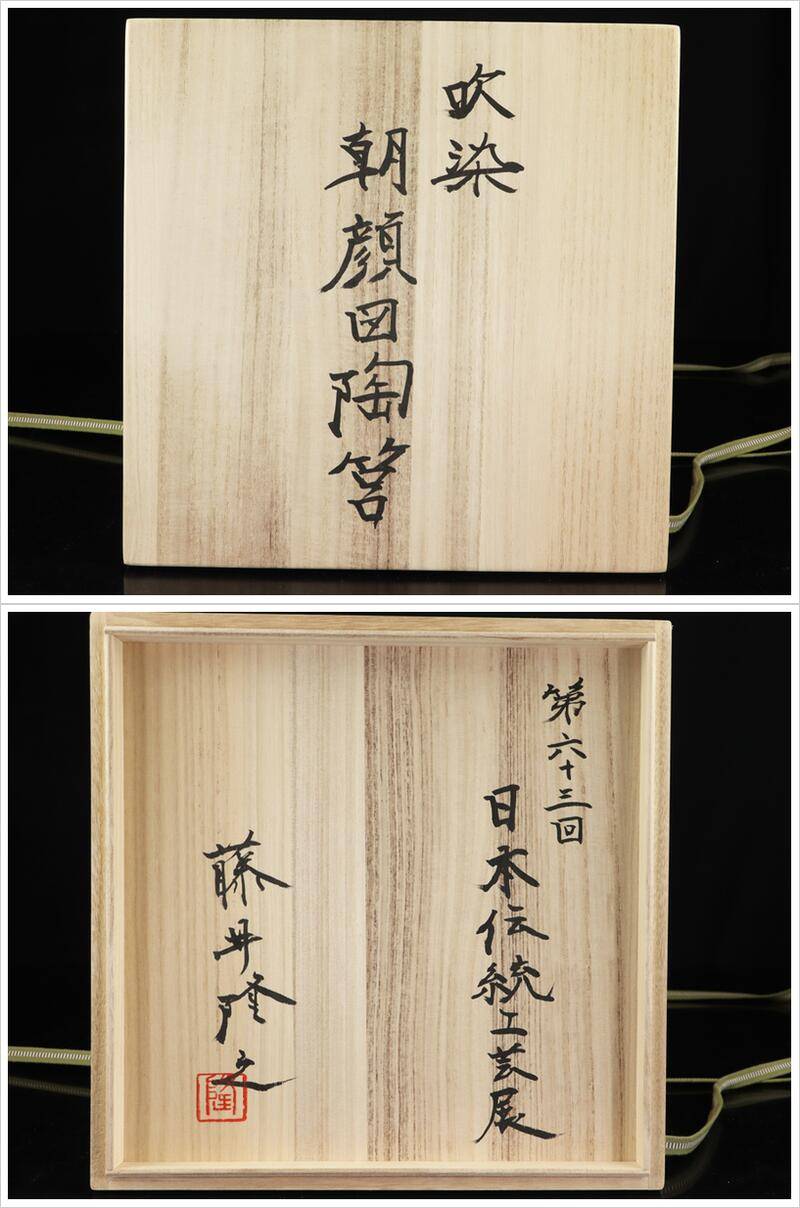 吹染
朝顔図陶筥
第六十三回
日本伝統工芸展
藤井隆之
隆